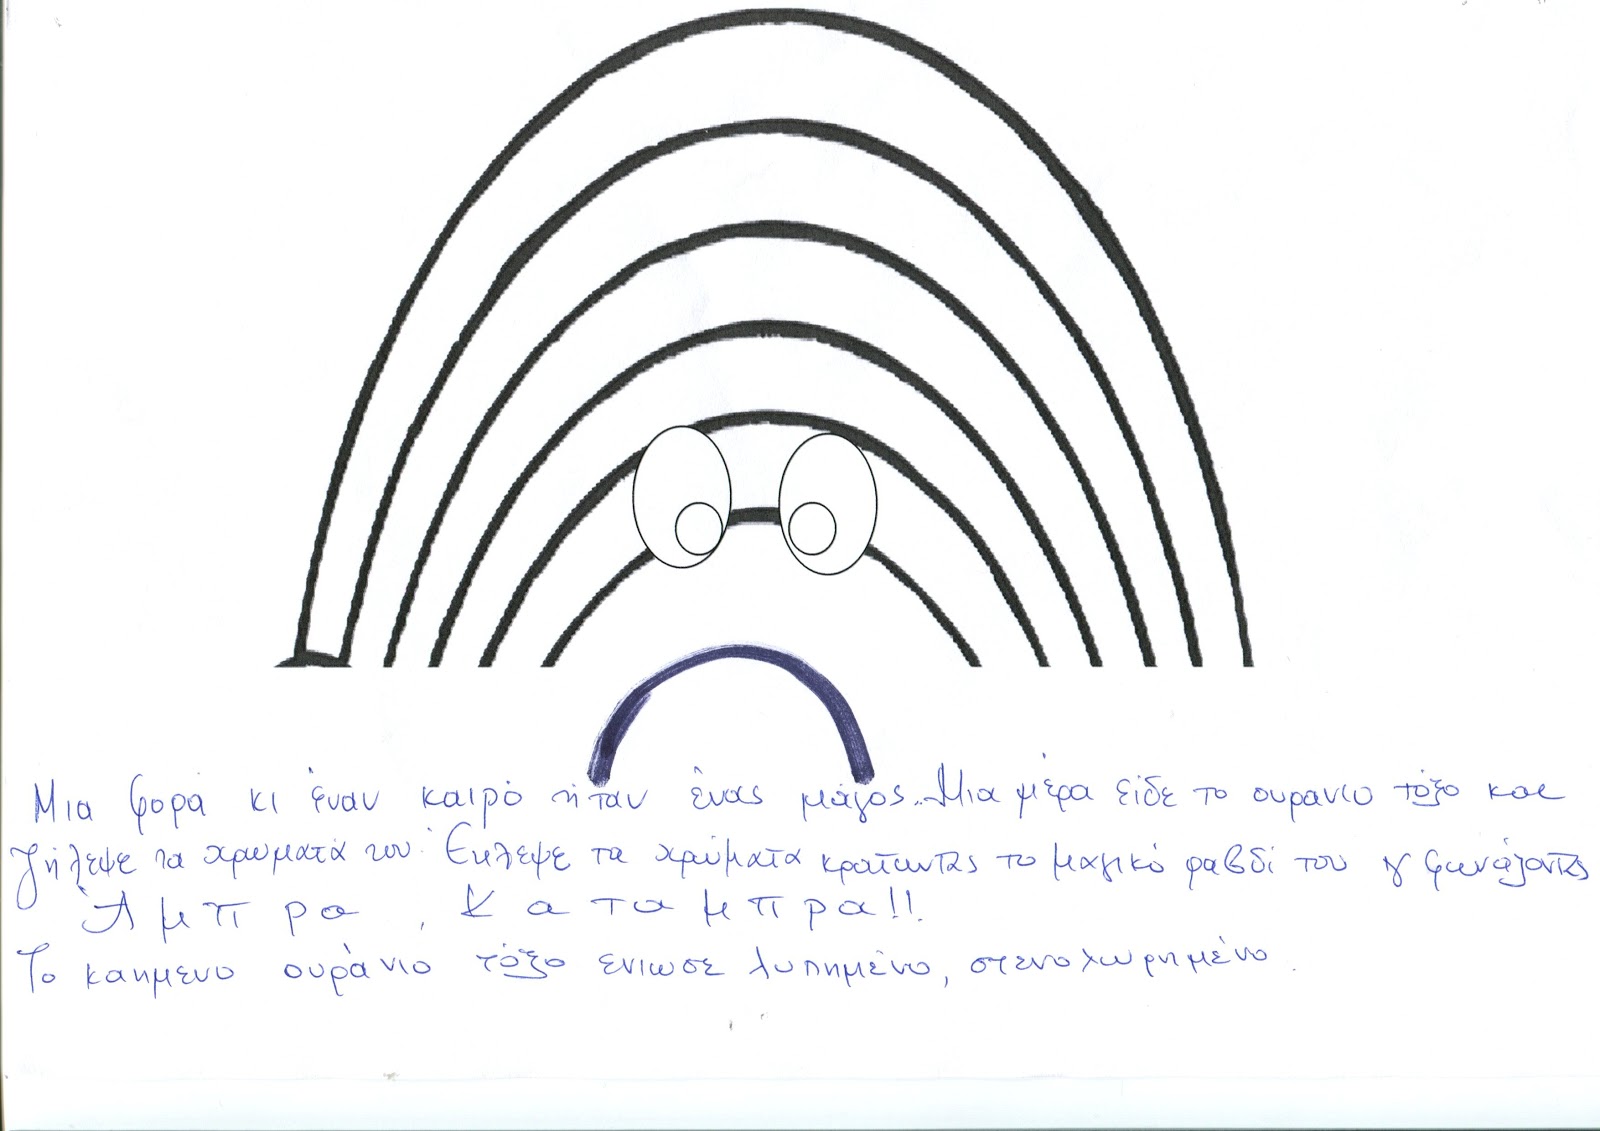 Μια φορά κι έναν καιρό ήταν ένας μάγος... Μια μέρα είδε το ουρανιο τόξο και
ζήλεψε τα χρωματά του. Έκλεψε τα χρώματα κρατωντας το μαγικό ραβδί του γ φωνάζοντας
Άμπρα, Καταμπρα!!
Το καημενο ουράνιο τόξο ενιωσε λυπημένο, στενοχωρημένο.